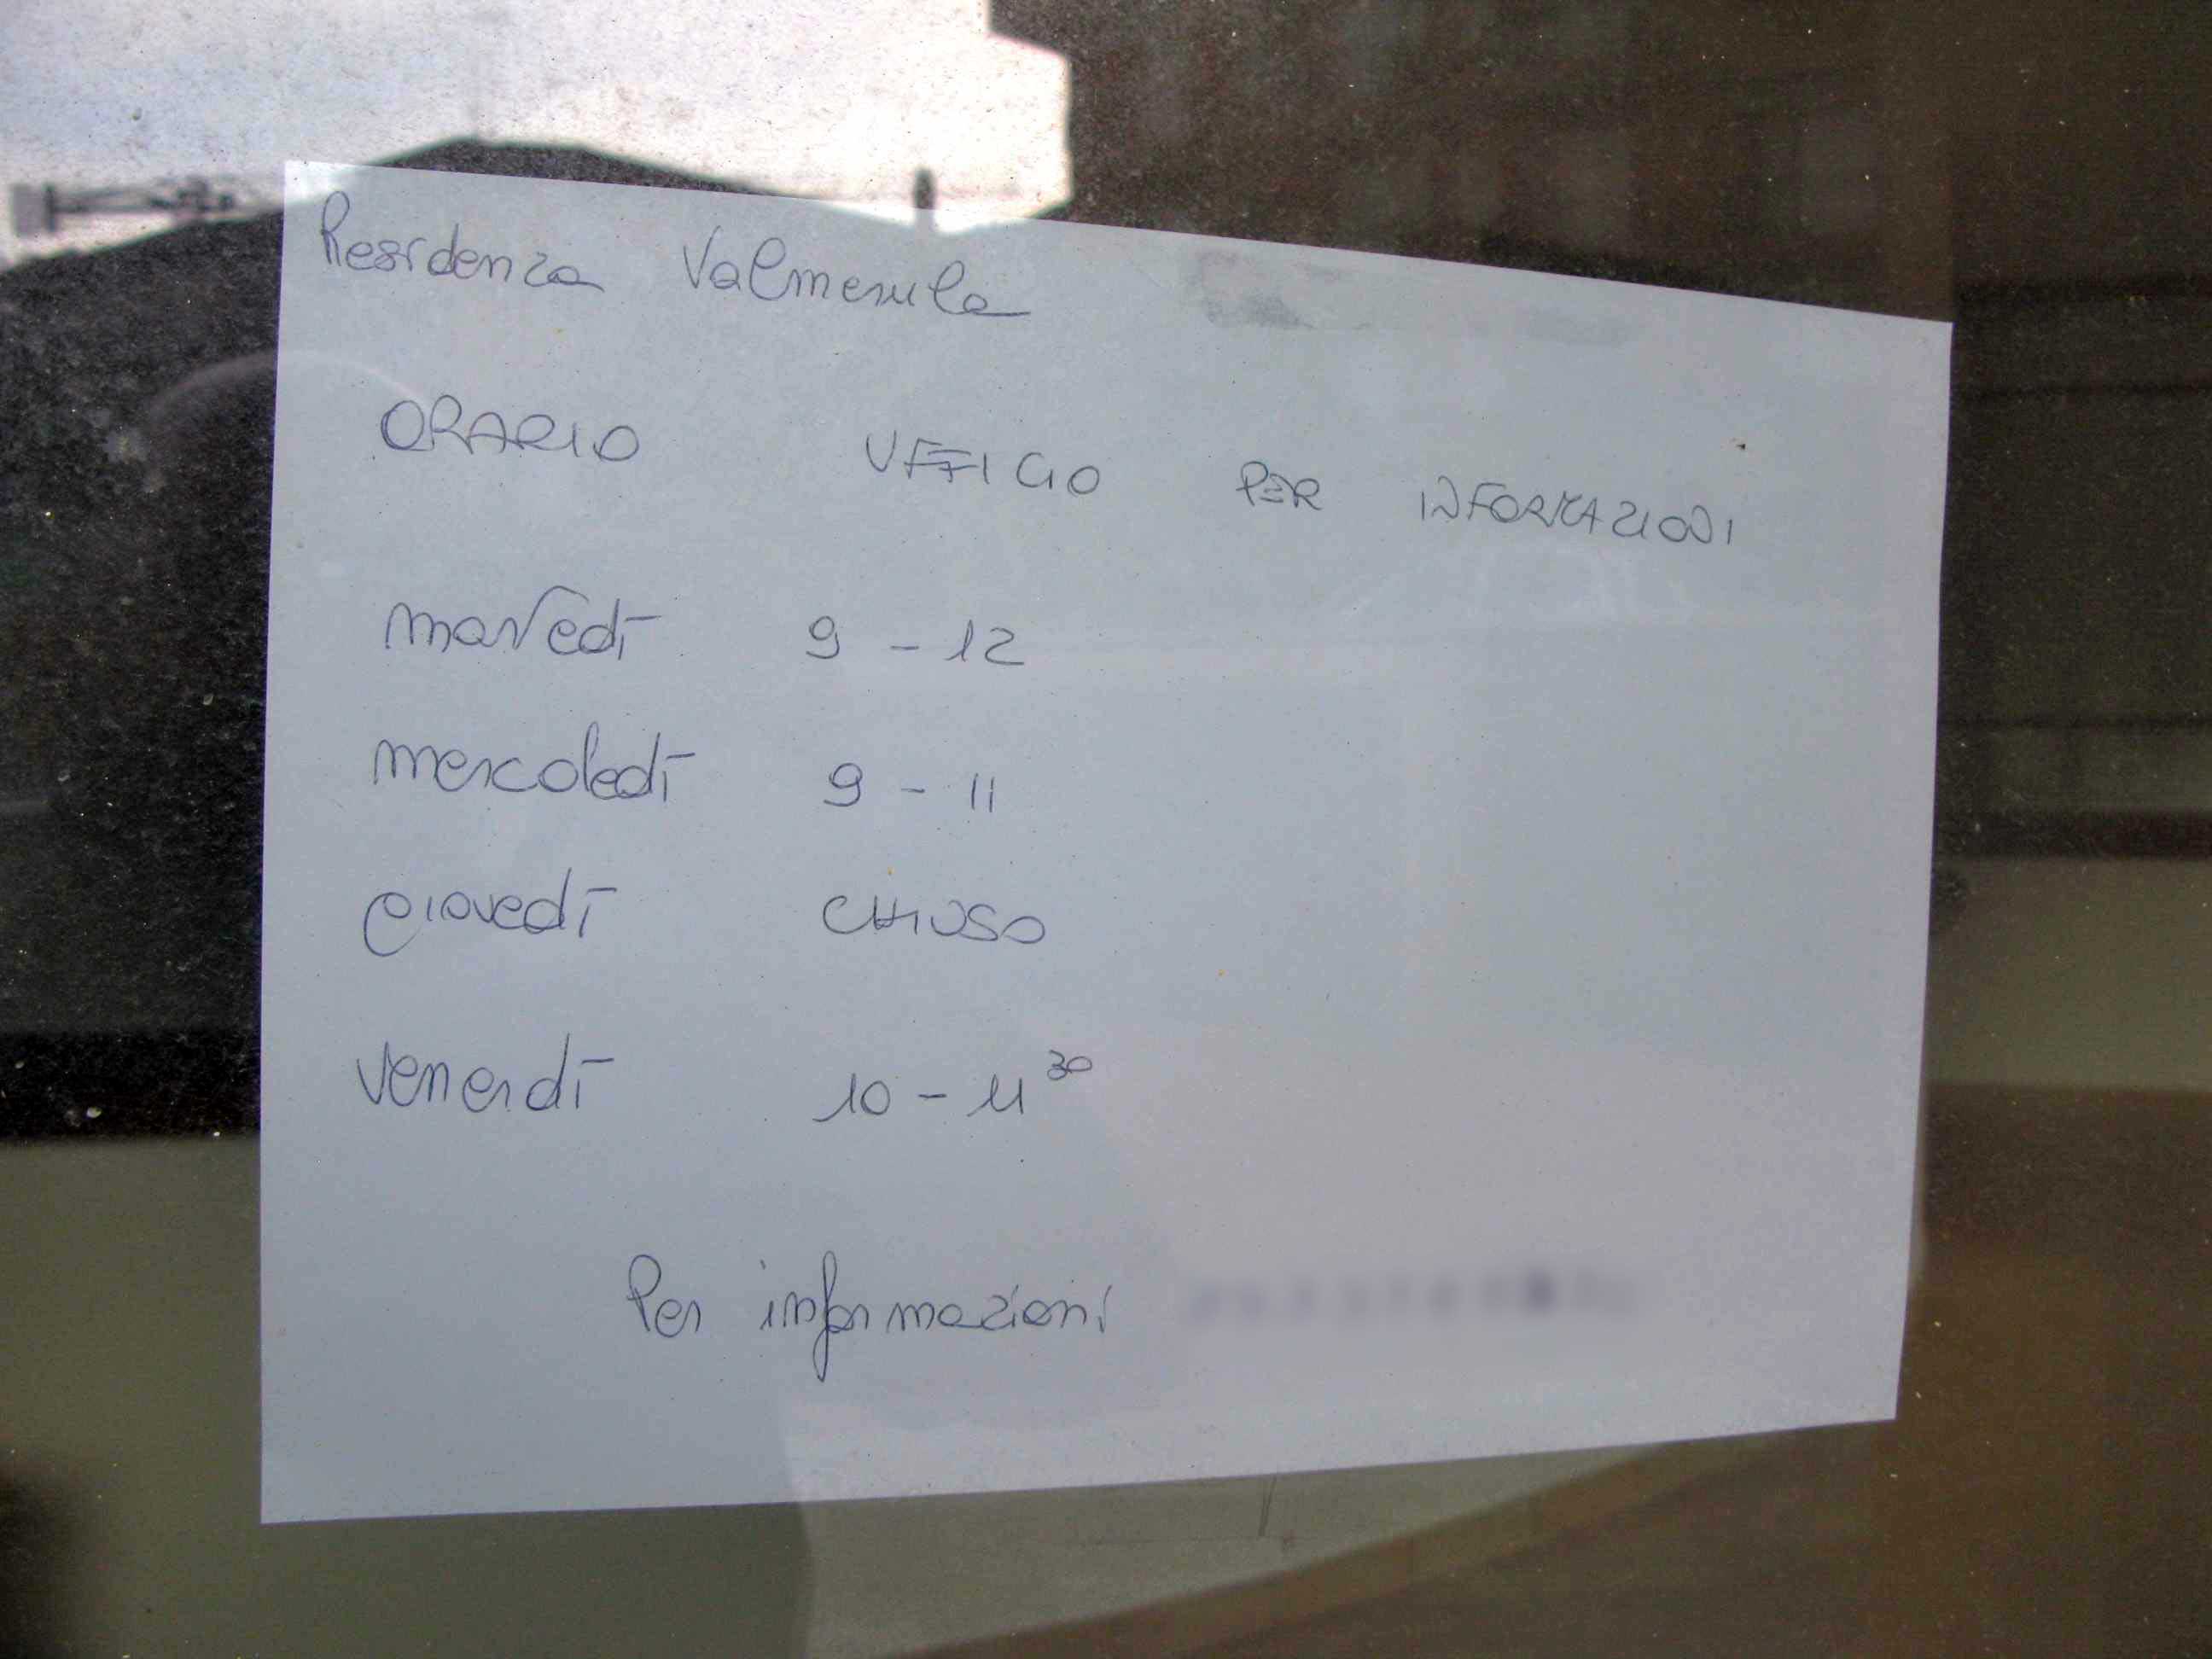 Residenza Valmerula
ORARIO UFFICIO PER INFORMAZIONI
martedì 9 - 12
mercoledì 9 - 11
giovedì CHIUSO
venerdì 10 - 11 30
Per informazioni